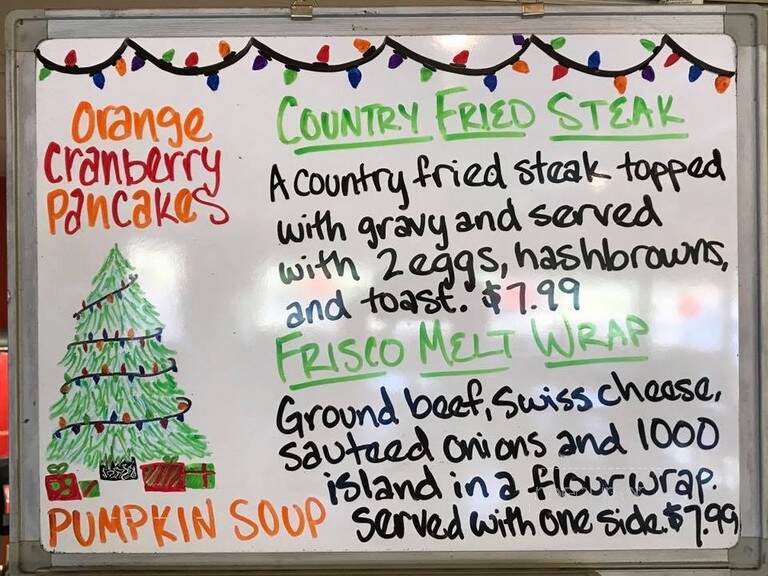 Orange
Cranberry
Pancakes
PUMPKIN SOUP
COUNTRY FRIED STEAK
A country fried steak topped
with gravy and served
with 2 eggs, hashbrowns,
and toast. $7.99
FRISCO MELT WRAP
Ground beef, Swiss cheese,
sauteed onions and 1000
island in a flour wrap.
Served with one side. $7.99